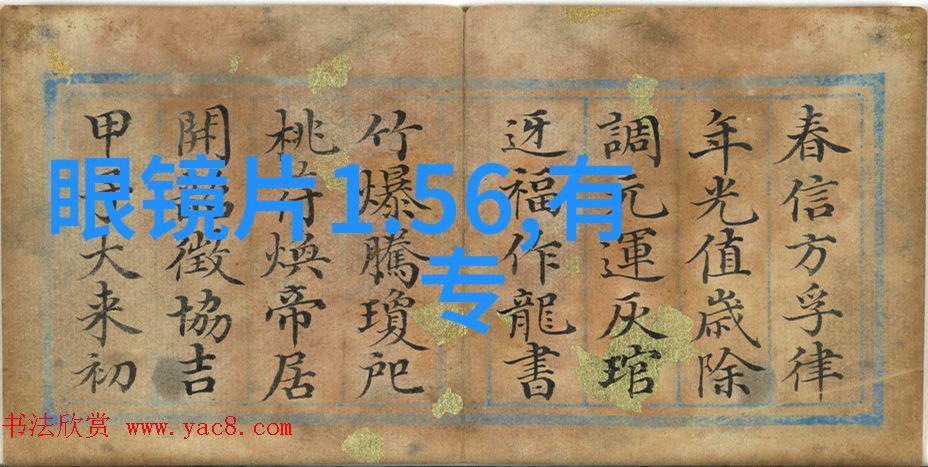 春信方孚律
年光值歳除
調元運灰琯
迓福作龍書
竹爆騰瓊戺
桃符煥帝居
開徵協吉
甲大来初
眼镜片1.56,有
专
书法欣赏 www.yac8.com